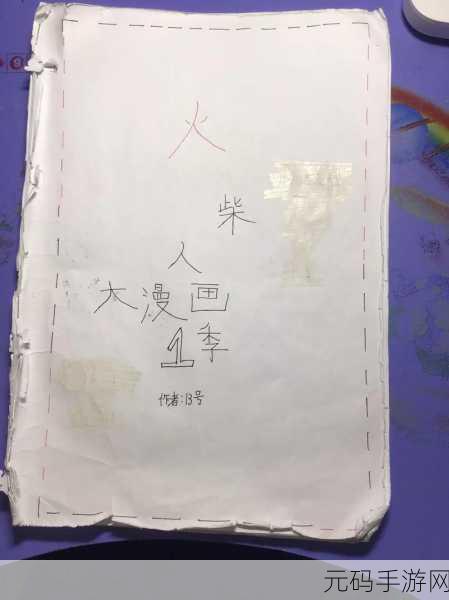 火
柴
人
大漫画
1季
作者:13号
元码手游网